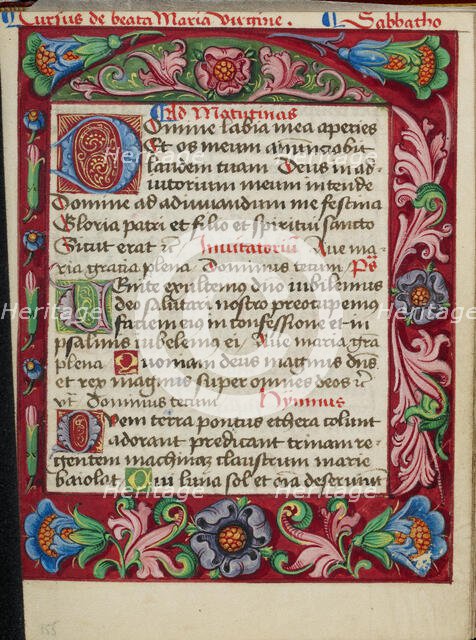 Cursus de beata Maria Virgine. Sabbatho
Ad Matutinas
Domine labia mea aperies
Et os meum anunctiabit
laudem tuam Deus in ad
iutorium meum intende
Domine ad adiuuandum me festina
Gloria patri et filio et spiritui sancto
Sicut erat Inuitatoriū Aue ma
ria gratia plena Dominus tecum Ps
Uenite exultemus dño iubilemus
deo salutari nostro preocupemꝰ
faciem eiꝰ in confessione et in
psalmis iubelemus ei Aue maria gra
plena Quoniam deus magnus dñs
et rex magnus super omnes deos
vt Dominus tecum Hymnus
Quem terra pontus ethera colunt
adorant predicant trinam re
gentem machinaz claustrum marie
baiolat Cui luna sol et oīa deseruiunt
155
Heritage
Heritage
Heritage
Heritage
Heritage
Heritage